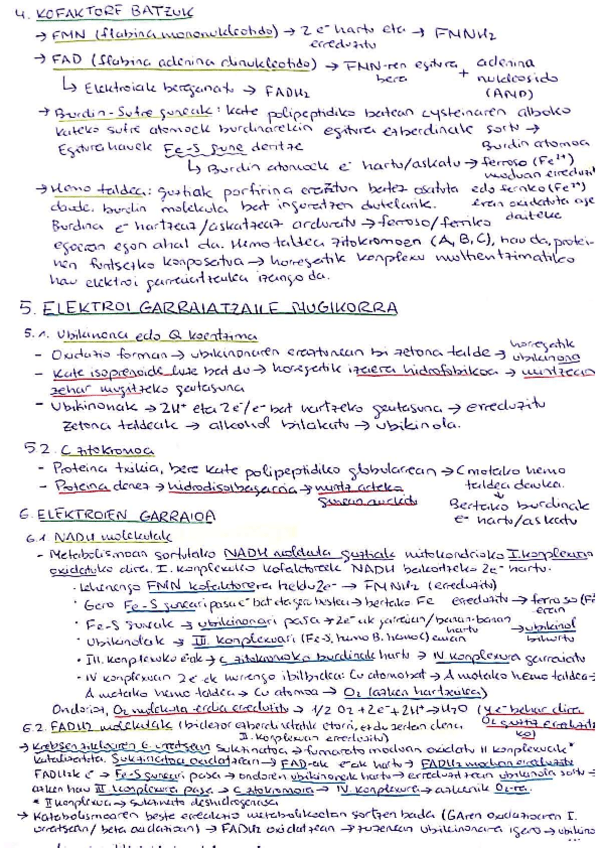 4. KOFAKTORE BATZUK
→ FMN (flabina mononukleotido) → 2 e⁻ hartu eta erreduzitu → FMNH2
→ FAD (flabina adenina dinukleotido) → FMN-ren egitura bera + adenina nukleosido (AMP)
↳ Elektroiak bereganatu → FADH2
→ Burdin-Sufre guneak: kate polipeptidiko batean cysteinaren alboko
kateko sufre atomoek burdinarekin egitura ezberdinak sortu →
Egitura hauek Fe-S gune deritze
↳ Burdin atomoek e⁻ hartu/askatu → ferroso (Fe²⁺) moduan
Burdin atomoa
edo ferriko (Fe³⁺)
eran oxidatuta
daiteke
→ Hemo taldea: guztiak porfirina eraztun batez osatuta
daude, burdin molekula bat inguratzen dutelarik.
Burdina e⁻ hartzeaz/askatzeaz arduratu → ferroso/ferriko
egoeran egon ahal da. Hemo taldea zitokromoen (A, B, C), hau da, protei-
nen funtsezko konposatua → horregatik konplexu multientzimatiko
hau elektroi garraiatzailea izango da.
5. ELEKTROI GARRAIATZAILE MUGIKORRA
5.1. Ubikinona edo Q koentzima
- Oxidazio forman → ubikinonaren eraztunean bi zetona talde → horregatik ubikinona
- Kate isoprenoide luze bat du → horregatik izaera hidrofobikoa → mintzean
zehar mugitzeko gaitasuna
- Ubikinonak → 2H⁺ eta 2e⁻/e⁻ bat hartzeko gaitasuna → erreduzitu
zetona taldeak → alkohol bilakatu → ubikinola.
5.2. C zitokromoa
- Proteina txikia, bere kate polipeptidiko globularrean → C motako hemo
taldea dauka.
- Proteina denez → hidrodisolbagarria → mintz arteko
gunean
Bertako burdinak
e⁻ hartu/askatu
6. ELEKTROIEN GARRAIOA
6.1. NADH molekulak
- Metabolismoan sortutako NADH molekula guztiak mitokondrioko I. konplexuan
oxidatuko dira. I. konplexuko kofaktoreak NADH bakoitzeko 2e⁻ hartu.
· Lehenengo FMN kofaktorera heldu 2e⁻ → FMNH2 (erreduzitu)
· Gero Fe-S guneari pasa e⁻ bat eta → bertako Fe erreduzitu → ferroso
· Fe-S guneak → ubikinonari pasa → 2e⁻ak garraian/banan-banan hartu → ubikinol bihurtu
· Ubikinolak → III. konplexuari (Fe-S, hemo B, hemo C) eman
· III. konplexuko e⁻ak → C zitokromoko burdinak hartu → IV konplexura garraiatu
· IV konplexuan 2e⁻ek hurrengo ibilbidea: Cu atomo bat → A motako hemo taldea →
A motako hemo taldea → Cu atomoa → O2 (azken hartzailea)
Ondorioz, O2 molekula erdia erreduzitu → 1/2 O2 + 2e⁻ + 2H⁺ → H2O (4e⁻ behar dira
O2 guztia
6.2. FADH2 molekulak (bidezor ezberdinetatik etorri,
II. konplexuan erreduzitu)
→ Krebsen zikloaren 6. urratsean sukzinatoa → fumarato moduan oxidatu II konplexuak*
katalizatuta. Sukzinatoa oxidatzean → FAD-ak e⁻ak hartu → FADH2 moduan erreduzitu
FADH2k e⁻ → Fe-S guneari pasa → ondoren ubikinonak hartu → erreduzitzean ubikinola sortu →
azken hau III konplexura pasa → C zitokromora → IV. konplexura → azkenik O2-ra.
* II konplexua → sukzinato deshidrogenasa
→ Katabolismoaren beste erredukzio metabolikoetan sortzen bada (GAren oxidazioaren I.
urratsean / beta oxidazioan) → FADH2 oxidatzean → zuzenean ubikinonara igaro →